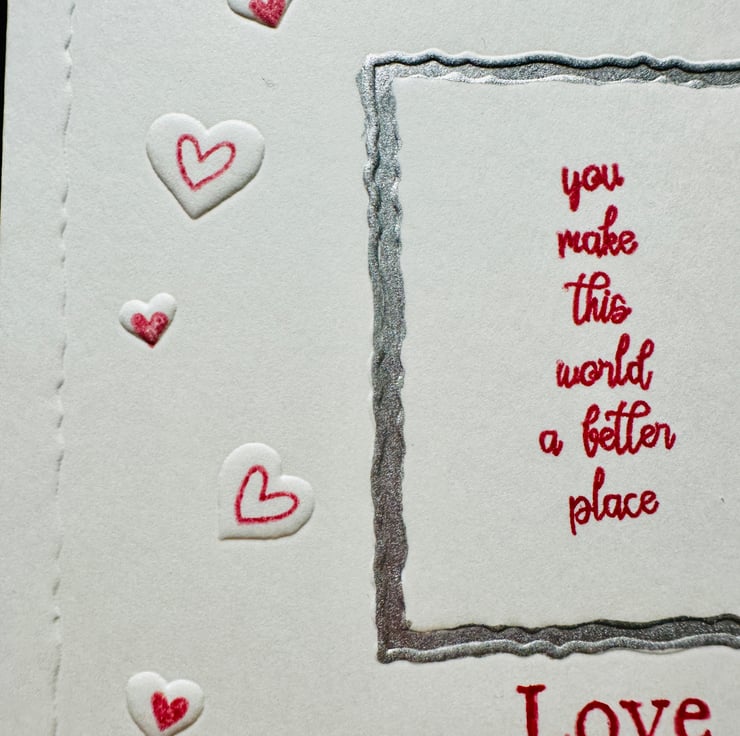 you
make
this
world
a better
place
Love